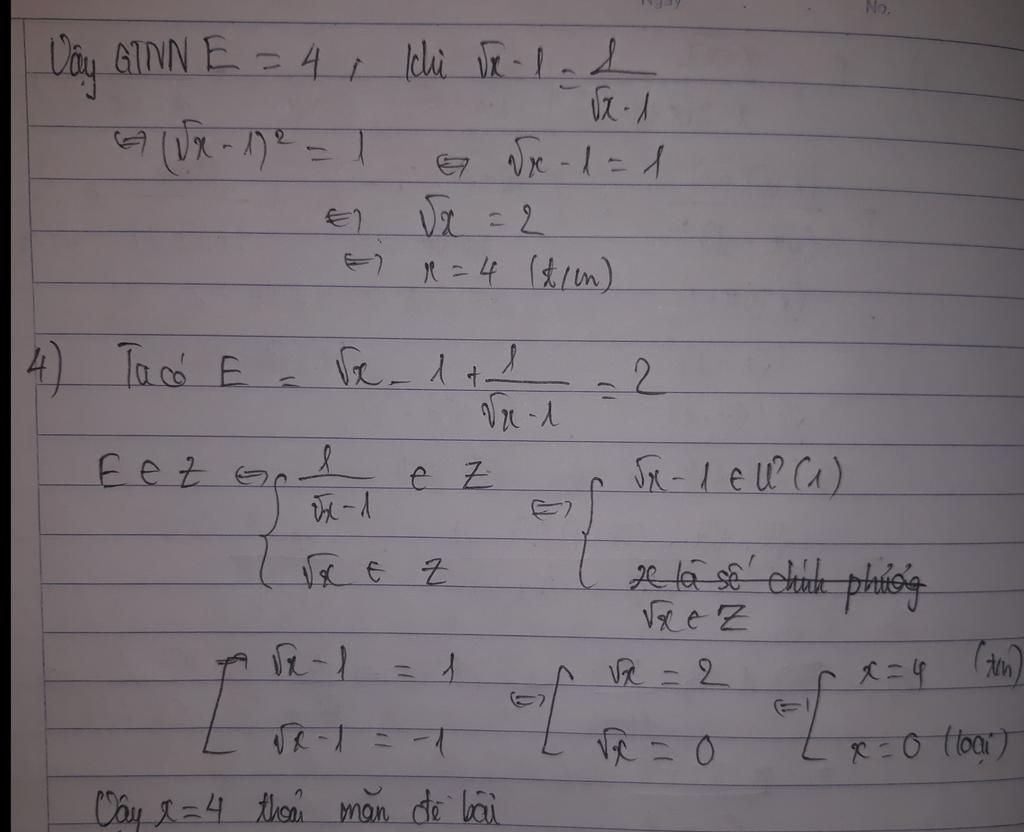 Ngày No.
Vậy GTNN E = 4, khi √x - 1 = 1/(√x - 1)
⇔ (√x - 1)² = 1 ⇔ √x - 1 = 1
⇔ √x = 2
⇔ x = 4 (t/m)
4) Ta có E = √x - 1 + 1/(√x - 1) = 2
E ∈ Z ⇔ { 1/(√x - 1) ∈ Z ⇔ { √x - 1 ∈ Ư(1)
√x ∈ Z x là số chính phương
√x ∈ Z
[ √x - 1 = 1 ⇔ [ √x = 2 ⇔ [ x = 4 (tm)
√x - 1 = -1 √x = 0 x = 0 (loại)
Vậy x = 4 thoả mãn đề bài